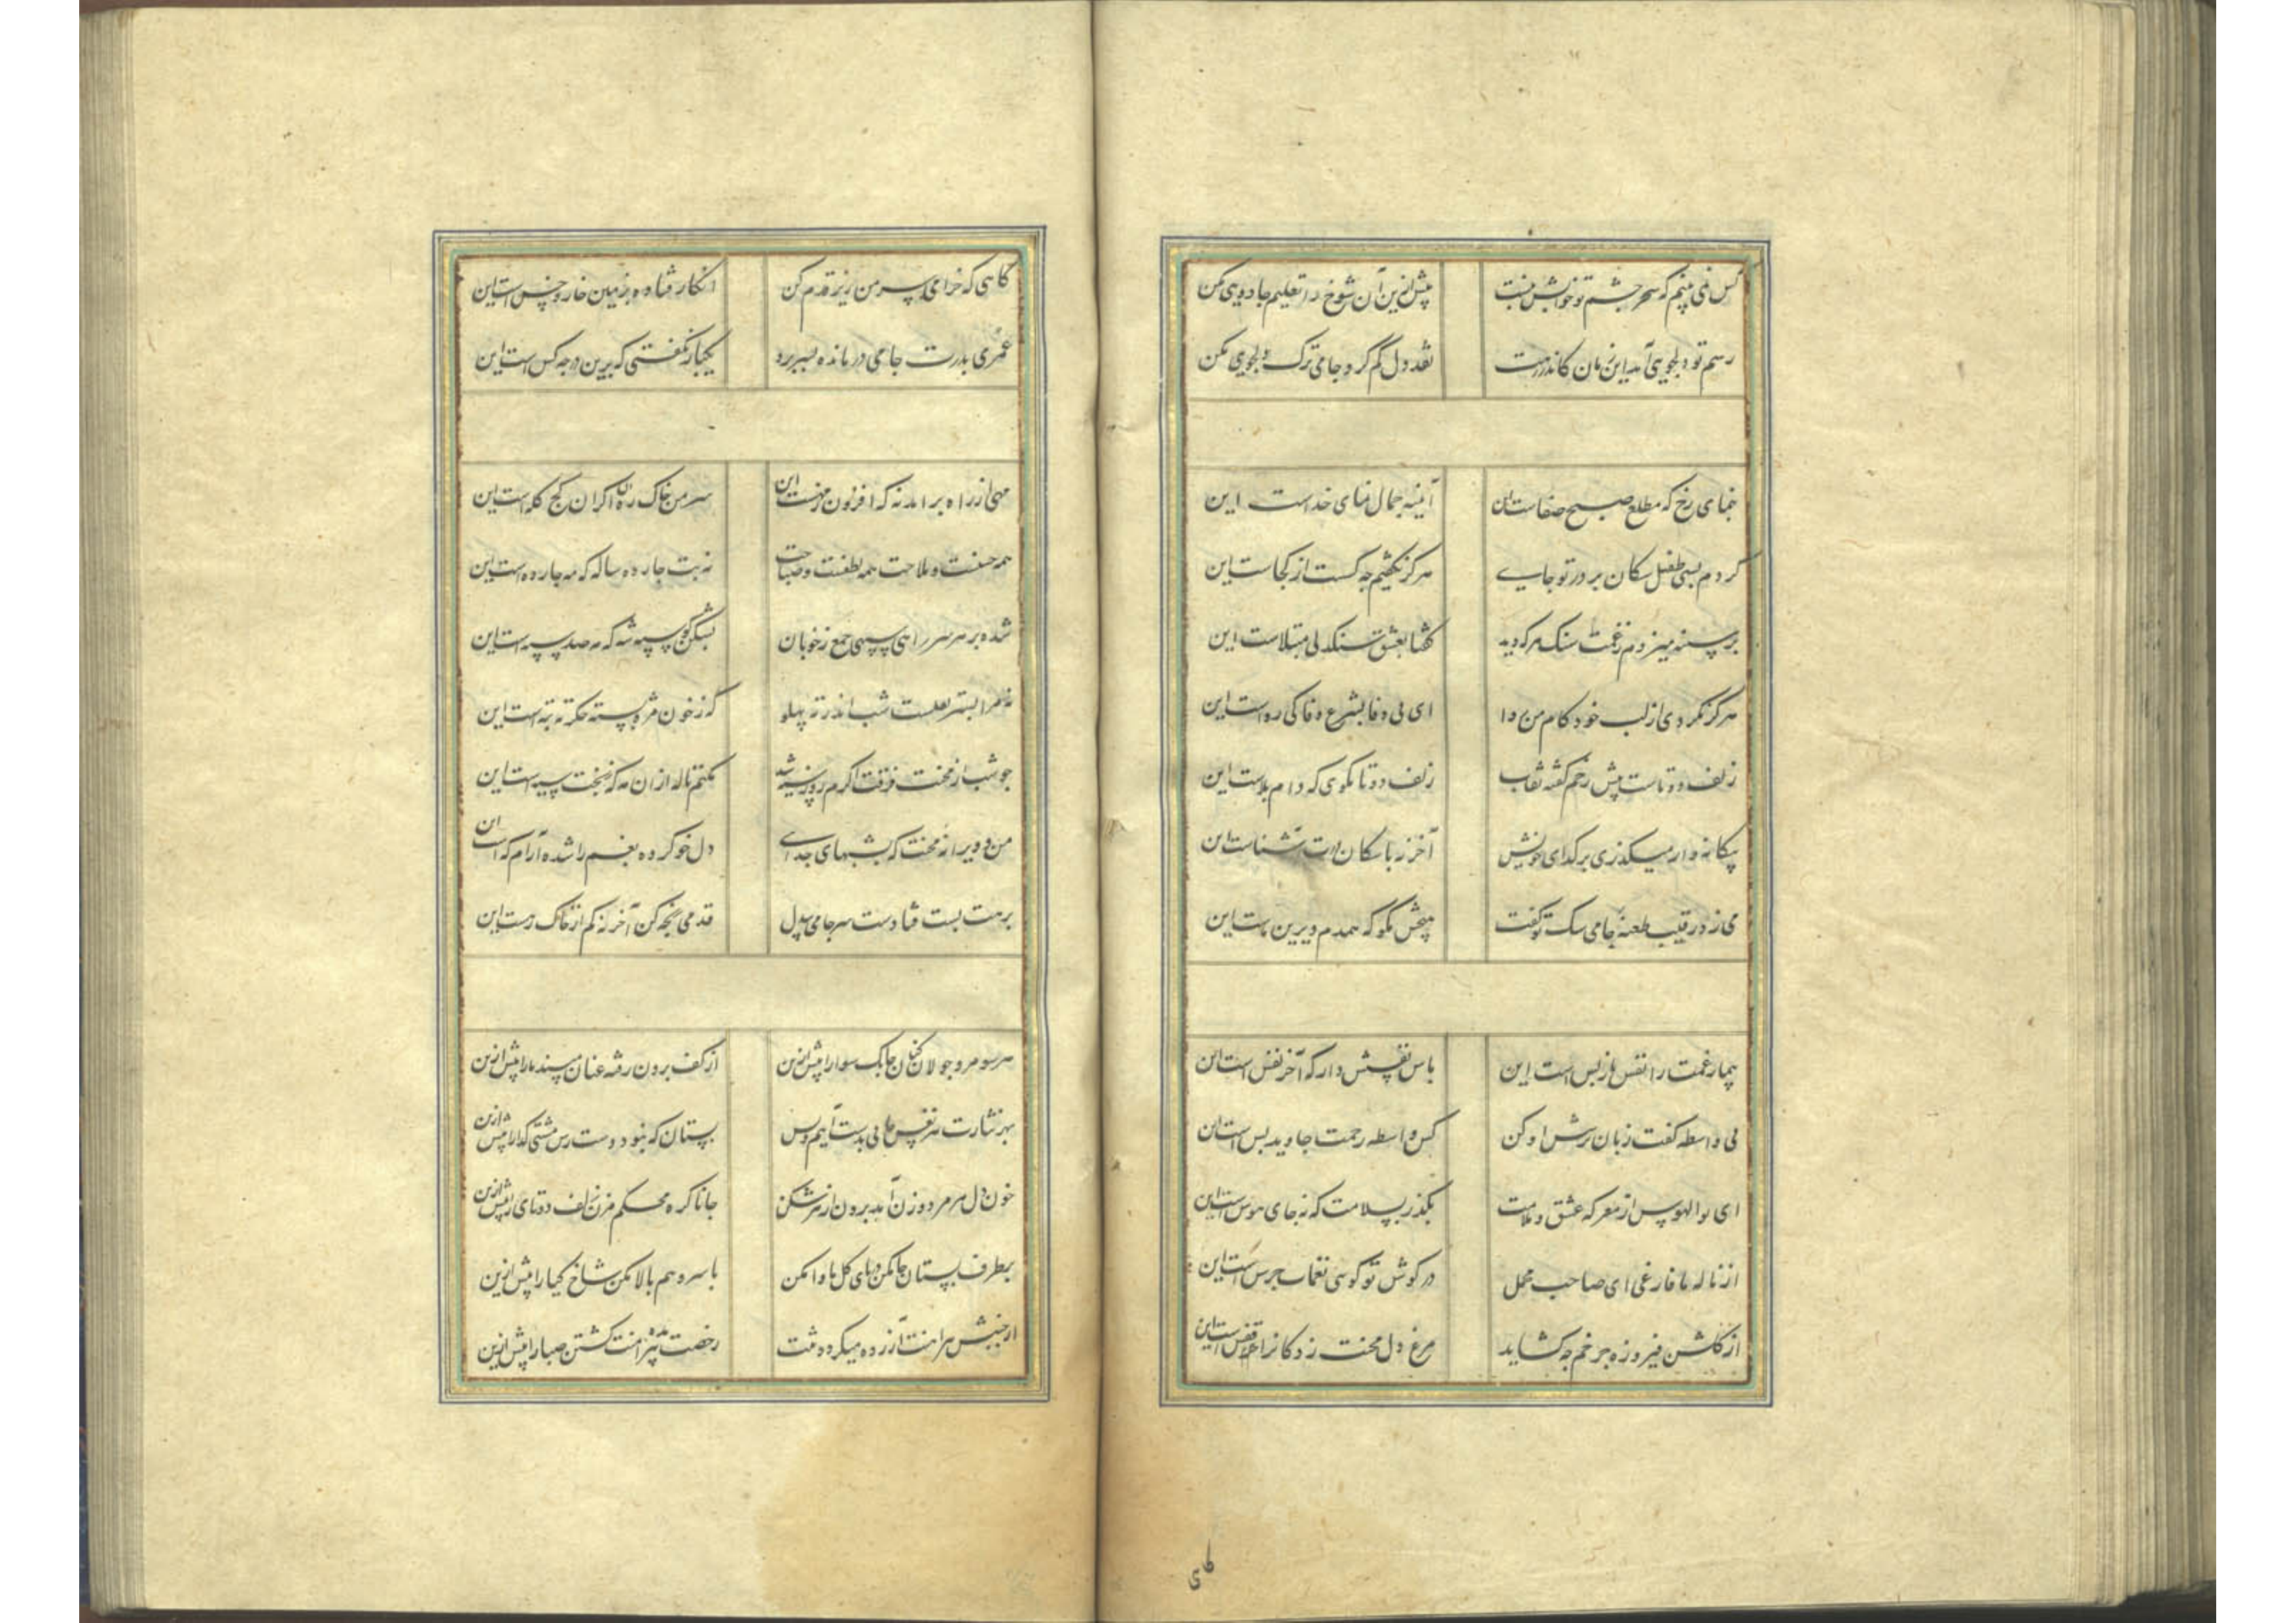 کس نمی بینم که سحر چشم تو خوابش نبست بیش ازین آن شوخ را تعلیم جادویی مکن
رسم تو دلجویی آمد این زمان کاندر رهت نقد دل گم کرد جامی ترک دلجویی مکن
بنمای رخ که مطلع صبح صفاست این آیینه جمال نمای خداست این
کردم بسی طفیل سکان بر در تو جای هرگز نگفتیم چه کست از کجاست این
بر سینه میزدم ز غمت سنک هر که دید گفتا بعشق سنگدلی مبتلاست این
هرگز نکردی از لب خود کام من روا ای بی وفا بشرع وفا کی رواست این
زلف دوتاست پیش رخم گفته نقاب زلف دوتا مگوی که دام بلاست این
بیکانه وار میکذری بر کدای خویش آخر نه با سکان درت آشناست این
می زد رقیب طعنه جامی سک تو گفت هیچش مگو که همدم دیرین ماست این
بیمار غمت را نفس بازپس است این پاس نفسش دار که آخر نفس است این
بی واسطه گفت زبان پرسش او کن کس واسطه رحمت جاوید بس است این
ای بوالهوس از معرکه عشق و ملامت بگذر بسلامت که نه جای هوس است این
از ناله ما فارغی ای صاحب محمل در کوش تو گویی نغمات جرس است این
از گلشن فیروزه چرخم چه گشاید مرغ دل محنت زدکانرا قفس است این
کاهی
گاهی که خرامی بسر من ز قدم کن انکار فتاده بزمین خار و خس است این
عمری بدرت جامی درمانده بسر برد یکبار نگفتی که برین در چه کس است این
مهی از راه برآمد نه که افزون ز مهست این سر من خاک ره آن اگر آن کج کله است این
همه حسنست و ملاحت همه لطفست و صباحت نه بت چارده ساله که مه چارده است این
شده بر هر سر راهی سپهی جمع ز خوبان بشکن گو سپه شه که مه صد سپه است این
نه مرا بستر لعلست شب اندر ته پهلو که ز خون مژه بسته جگر ته بته است این
چو شب از محنت فرقت اگرم روز سیه شد نکنم ناله از آن مه که ز بخت سیه است این
من و ویرانه محنت که شبهای جدایی دل خو کرده بغم را شده آرامگه است این
برهت پست فتادست سر جامی بیدل قدمی رنجه کن آخر نه کم از خاک ره است این
هر سو مرو جولان کنان چابک سوارا بیش ازین از کف برون رفته عنان مپسند ما را بیش ازین
بهر نثارت هر نفس جانی بدست آییم و بس بستان که نبود دسترس مشتی گدا را بیش ازین
خون دل هر مرد و زن آمد برون از هر شکن جانا گره محکم مزن زلف دوتا را بیش ازین
بطرف بستان جا مکن در پای گل ماوا مکن با سرو هم بالا مکن شاخ گیا را بیش ازین
از جنبش پیراهنت آزرده میگردد تنت رخصت مده پیرامنت گشتن صبا را بیش ازین